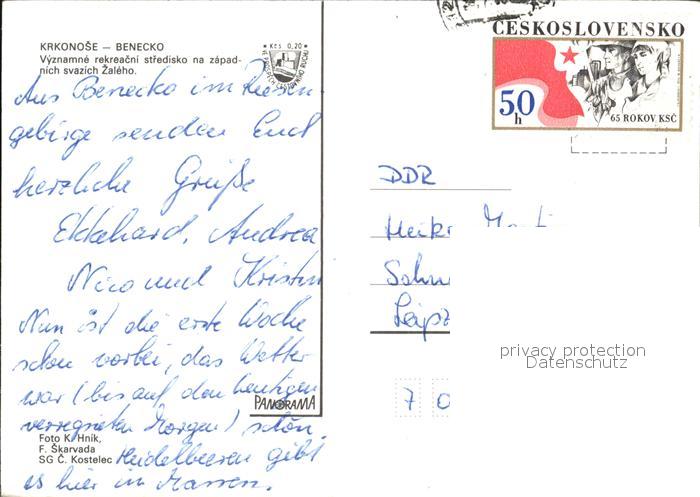 KRKONOŠE — BENECKO
Významné rekreační středisko na západ-
ních svazích Žalého.
Kčs 0,20
ČESKOSLOVENSKO
50 h
65 ROKOV KSČ
Aus Benecko im Riesen
gebirge senden Euch
herzliche Grüße
Ekkehard, Andrea
Nico und Kristin
Nun ist die erste Woche
schon vorbei, das Wetter
war (bis auf den heutigen
verregneten Morgen) schön.
Heidelbeeren gibt
es hier in Massen.
PANORAMA
Foto K. Hník,
F. Škarvada
SG Č. Kostelec
DDR
Heik
Leipz
7 0
privacy protection
Datenschutz